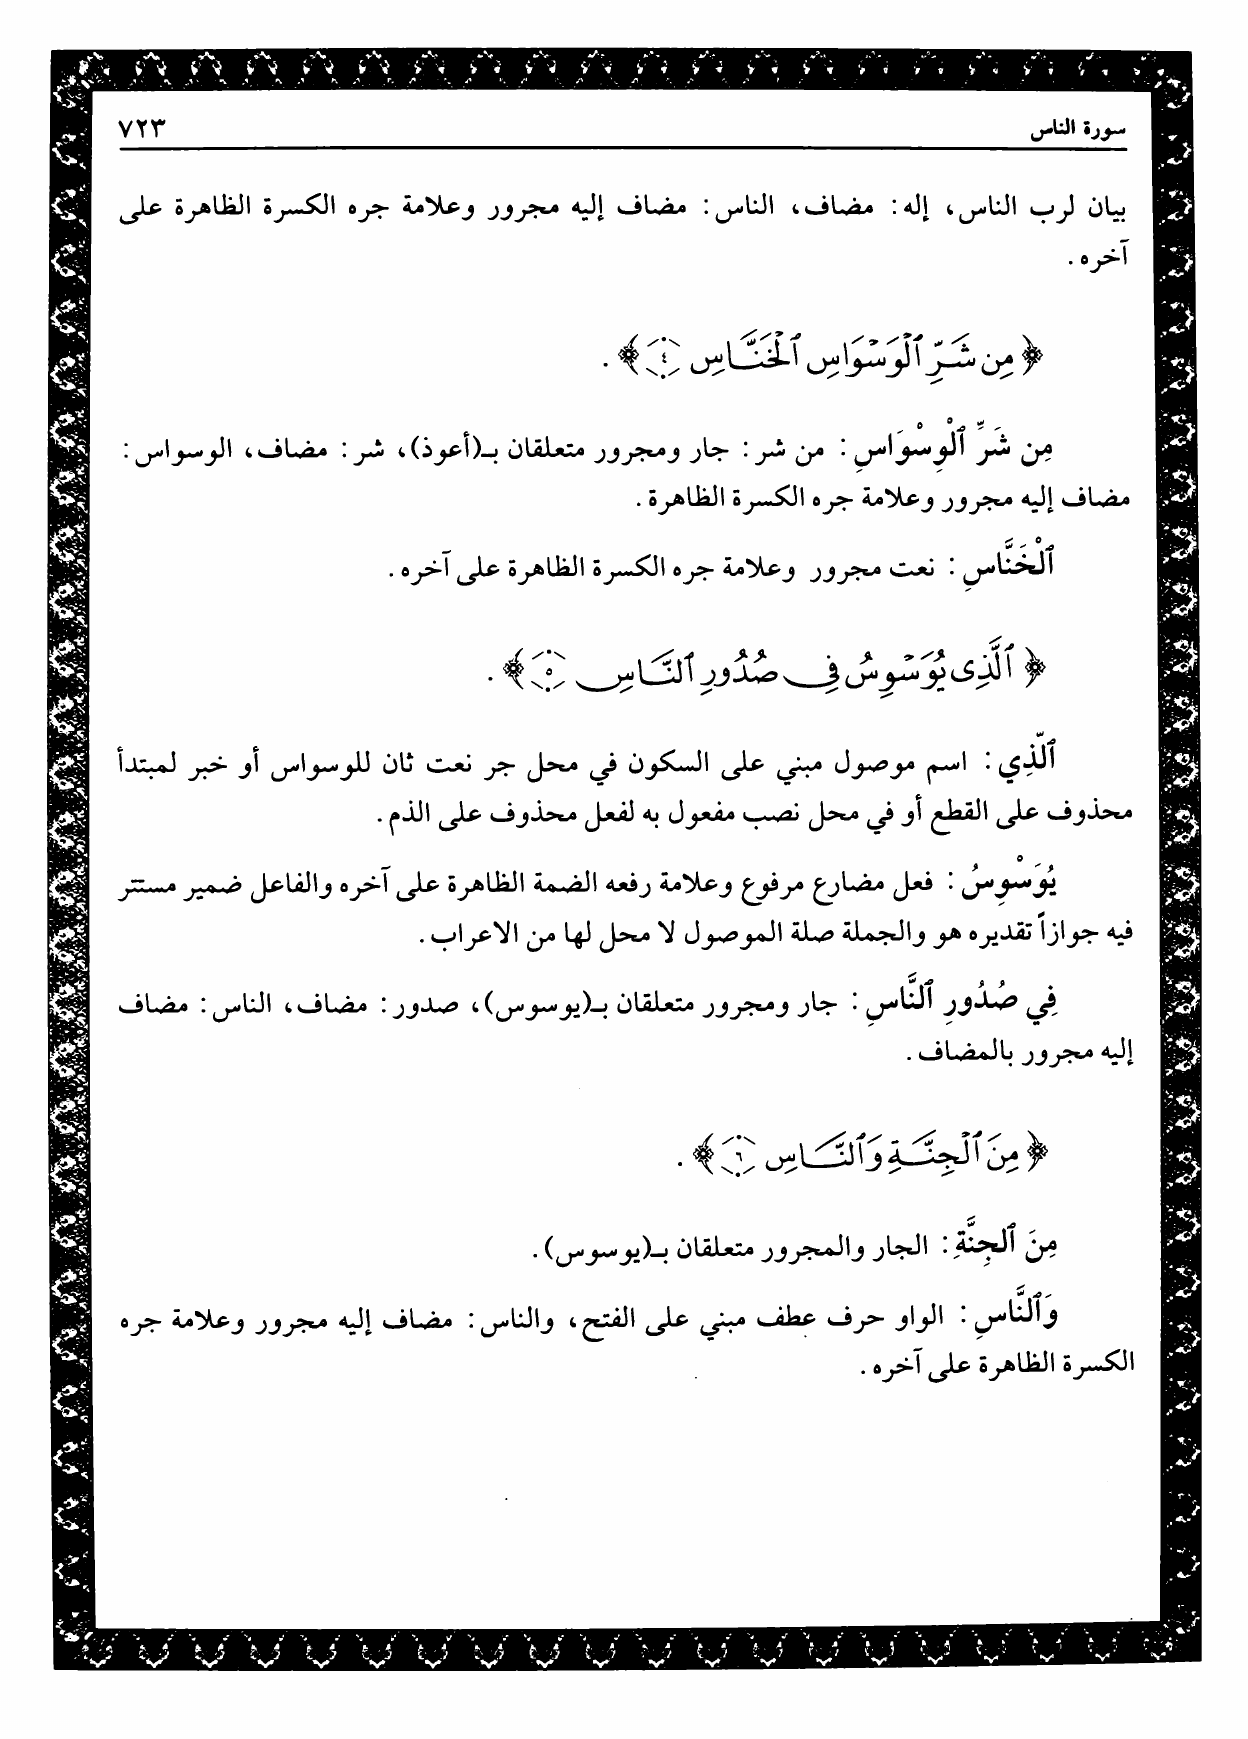 سورة الناس ٧٢٣
بيان لرب الناس، إله: مضاف، الناس: مضاف إليه مجرور وعلامة جره الكسرة الظاهرة على
آخره.
﴿ مِن شَرِّ ٱلْوَسْوَاسِ ٱلْخَنَّاسِ ٤ ﴾.
مِن شَرِّ ٱلْوِسْوَاسِ: من شر: جار ومجرور متعلقان بـ(أعوذ)، شر: مضاف، الوسواس:
مضاف إليه مجرور وعلامة جره الكسرة الظاهرة.
ٱلْخَنَّاسِ: نعت مجرور وعلامة جره الكسرة الظاهرة على آخره.
﴿ ٱلَّذِى يُوَسْوِسُ فِى صُدُورِ ٱلنَّاسِ ٥ ﴾.
ٱلَّذِي: اسم موصول مبني على السكون في محل جر نعت ثان للوسواس أو خبر لمبتدأ
محذوف على القطع أو في محل نصب مفعول به لفعل محذوف على الذم.
يُوَسْوِسُ: فعل مضارع مرفوع وعلامة رفعه الضمة الظاهرة على آخره والفاعل ضمير مستتر
فيه جوازاً تقديره هو والجملة صلة الموصول لا محل لها من الاعراب.
فِي صُدُورِ ٱلنَّاسِ: جار ومجرور متعلقان بـ(يوسوس)، صدور: مضاف، الناس: مضاف
إليه مجرور بالمضاف.
﴿ مِنَ ٱلْجِنَّةِ وَٱلنَّاسِ ٦ ﴾.
مِنَ ٱلجِنَّةِ: الجار والمجرور متعلقان بـ(يوسوس).
وَٱلنَّاسِ: الواو حرف عطف مبني على الفتح، والناس: مضاف إليه مجرور وعلامة جره
الكسرة الظاهرة على آخره.